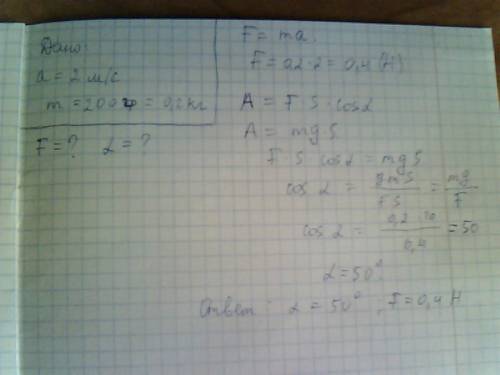 Дано:
a = 2 м/с
m = 200 г = 0,2 кг
F = ? α = ?
F = ma.
F = 0,2 · 2 = 0,4 (Н)
A = F · S · cos α
A = mg S
F · S · cos α = mg S
cos α = gmS / FS = mg / F
cos α = 0,2 · 10 / 0,4 = 50
α = 50°.
Ответ: α = 50°, F = 0,4 Н